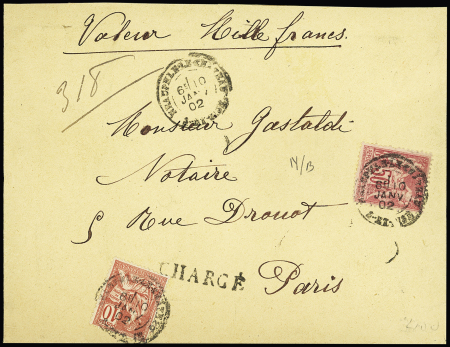 Valeur Mille francs.
318
6E 10
JANV
02
Monsieur Gastaldi
N/B
Notaire
6E 10
JANV
02
5 Rue Drouot
CHARGÉ
Paris
10